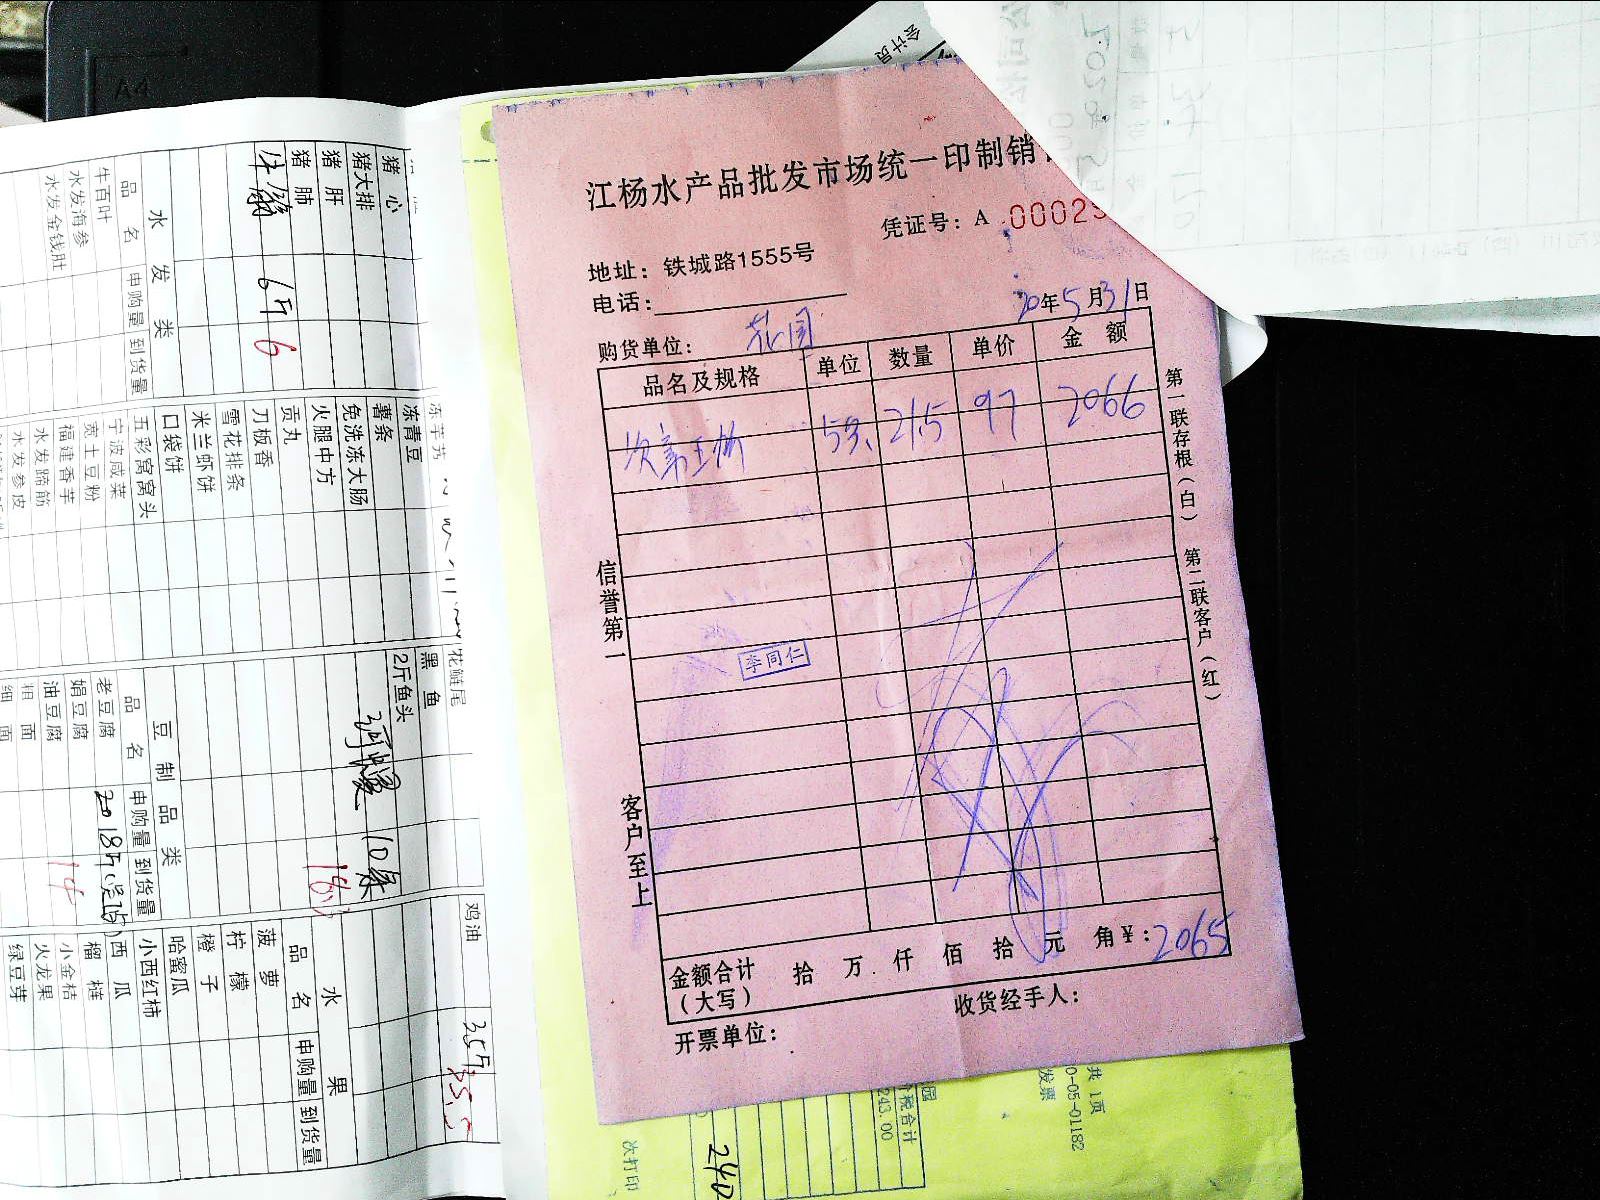 江杨水产品批发市场统一印制销
凭证号：A 00029
地址：铁城路1555号
电话：
20年5月31日
购货单位：花园
品名及规格 单位 数量 单价 金额
21.5 97 2066
第一联存根（白） 第二联客户（红）
信誉第一
客户至上
李同仁
金额合计（大写） 拾 万 仟 佰 拾 元 角 ¥：2065
开票单位：
收货经手人：
会计员
A4
猪心
猪大排
猪肝
猪肺
6斤 6
水发类
品名 申购量 到货量
牛百叶
水发海参
水发金钱肚
冻青豆
薯条
免洗冻大肠
火腿中方
贡丸
刀板香
雪花排条
米兰虾饼
口袋饼
五彩窝窝头
宁波咸菜
宽土豆粉
福建香芋
水发蹄筋
水发参皮
花鲢尾
黑鱼
2斤鱼头
10条
豆制品类
品名 申购量 到货量
老豆腐
娟豆腐
油豆腐 14
粗面
细面
鸡油 35斤 35.5
水果
品名 申购量 到货量
菠萝
柠檬
橙子
哈蜜瓜
小西红柿
西瓜
榴梿
小金桔
火龙果
绿豆芽
共 1页
0-05-01182
发票
园
价税合计
243.00
240
次打印